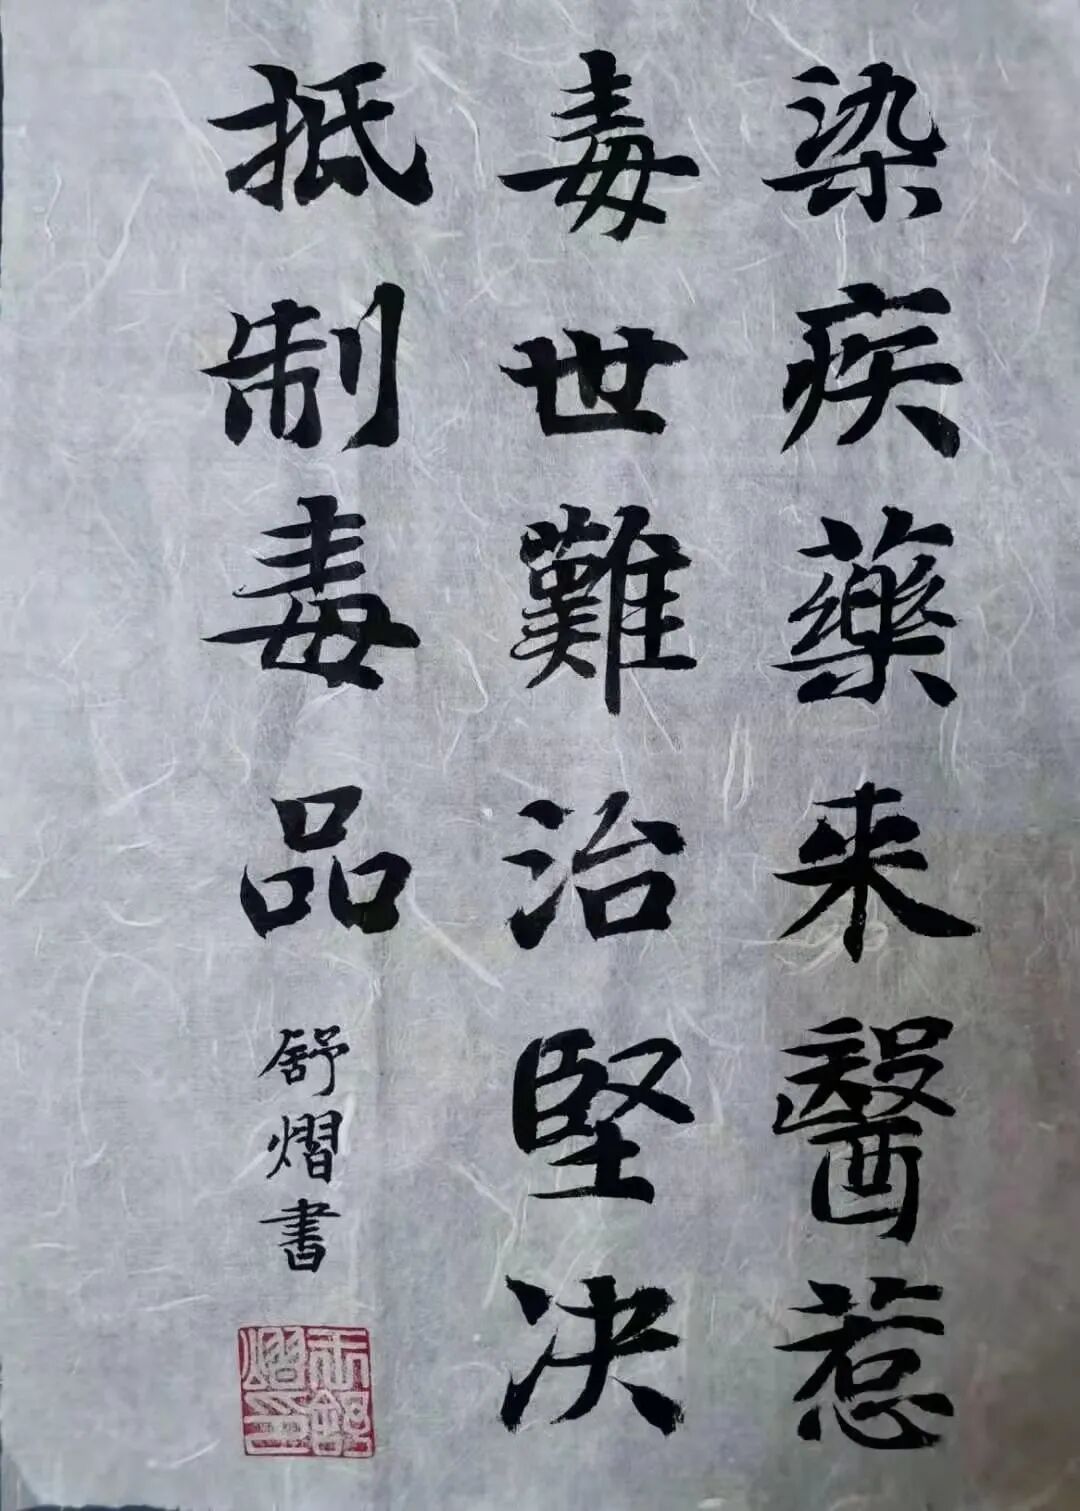 染疾藥来醫惹
毒世難治堅决
抵制毒品
舒熠書